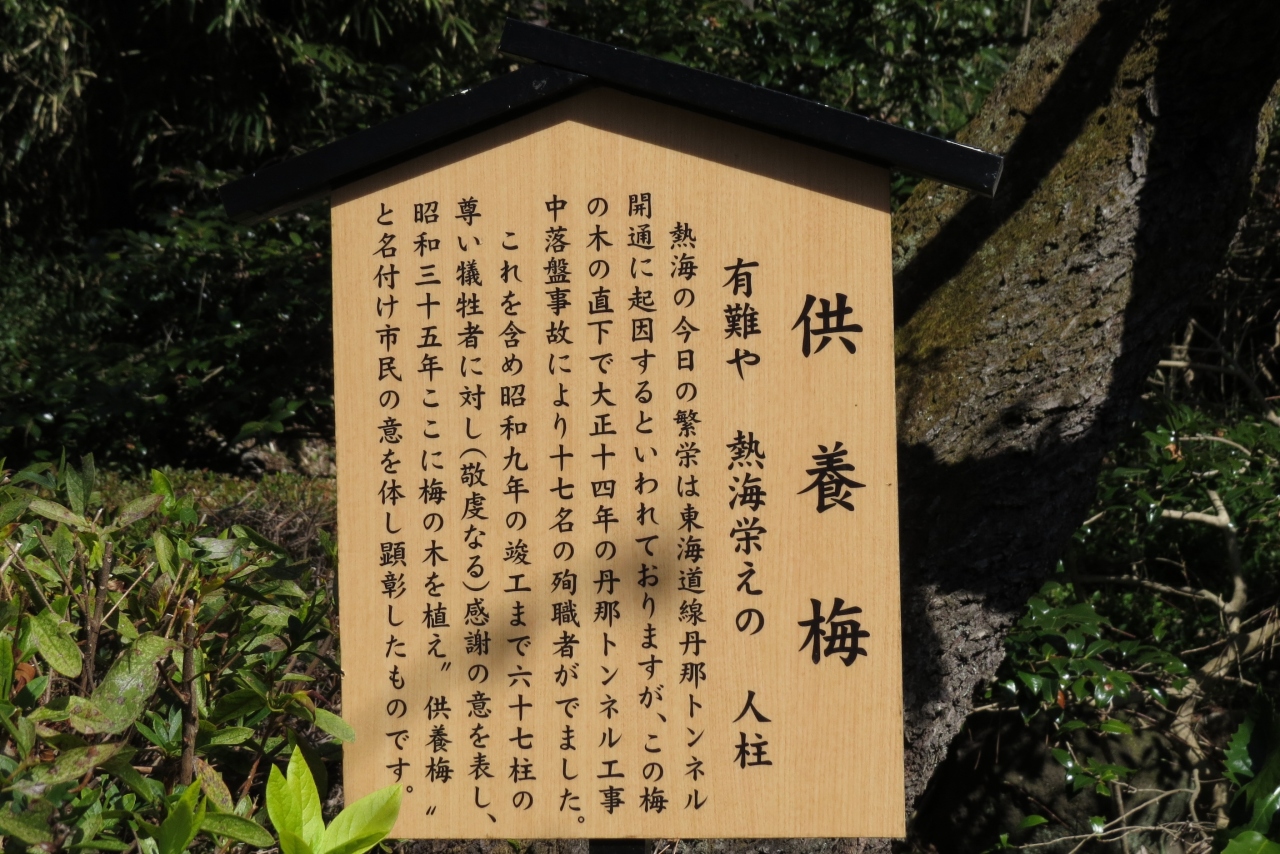 供養梅
有難や　熱海栄えの　人柱
熱海の今日の繁栄は東海道線丹那トンネル
開通に起因するといわれておりますが、この梅
の木の直下で大正十四年の丹那トンネル工事
中落盤事故により十七名の殉職者がでました。
これを含め昭和九年の竣工まで六十七柱の
尊い犠牲者に対し(敬虔なる)感謝の意を表し、
昭和三十五年ここに梅の木を植え〃供養梅〃
と名付け市民の意を体し顕彰したものです。